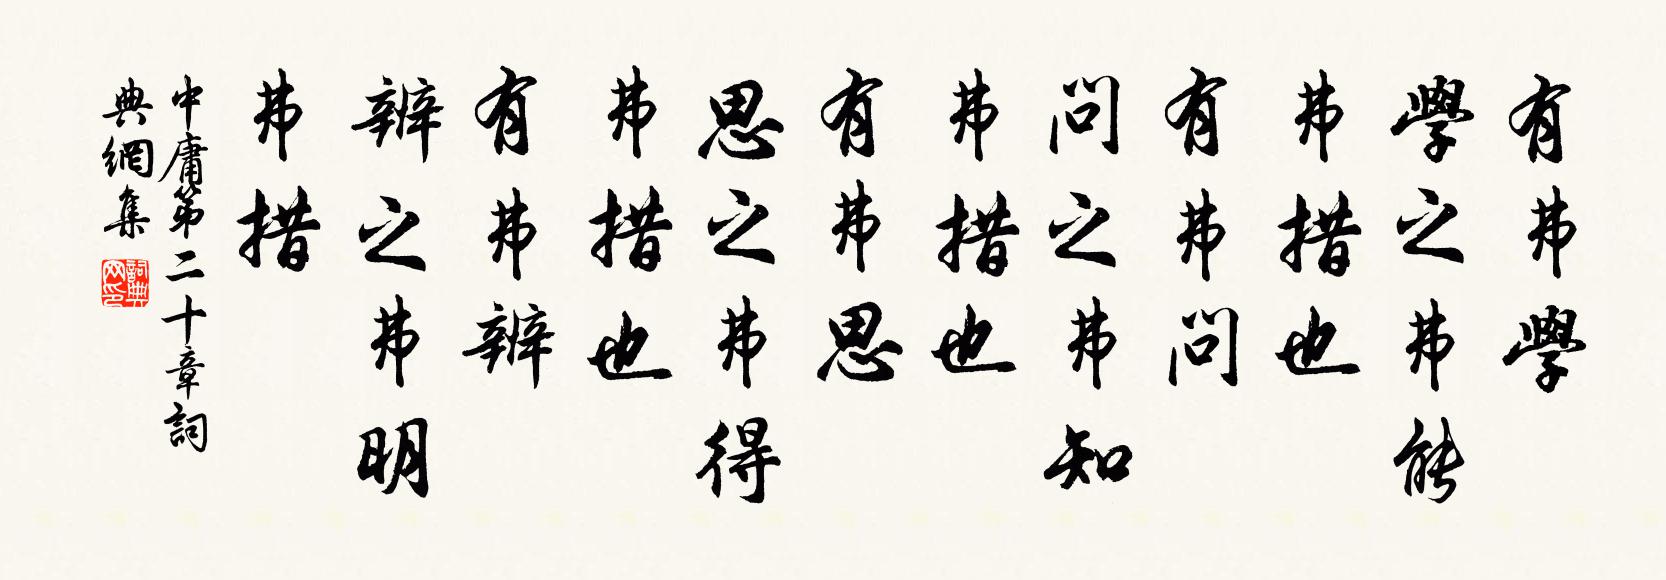 有弗學
學之弗能
弗措也
有弗問
問之弗知
弗措也
有弗思
思之弗得
弗措也
有弗辨
辨之弗明
弗措
中庸第二十章詞
典網集
詞典
网印